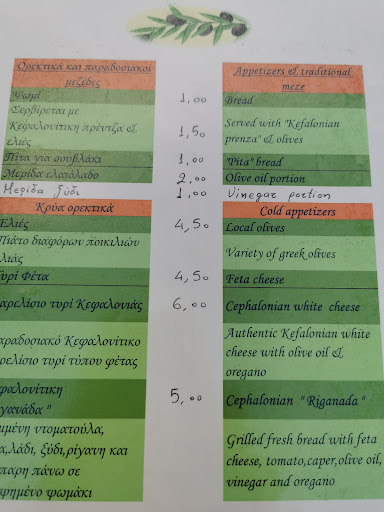 Ορεκτικά και παραδοσιακοί
μεζέδες
Ψωμί
Σερβίρεται με
Κεφαλονίτικη πρέντζα &
ελιές
Πίτα για σουβλάκι
Μερίδα ελαιόλαδο
Μερίδα ξύδι
Κρύα ορεκτικά
Ελιές
Πιάτο διαφόρων ποικιλιών
λιάς
Τυρί Φέτα
αρελίσιο τυρί Κεφαλονιάς
αραδοσιακό Κεφαλονίτικο
ρελίσιο τυρί τύπου φέτας
φαλονίτικη
γανάδα "
μμένη ντοματούλα,
α,λάδι, ξύδι,ρίγανη και
παρη πάνω σε
φημένο ψωμάκι
1,00
1,50
1,00
2,00
1,00
4,50
4,50
6,00
5,00
Appetizers & traditional
meze
Bread
Served with "Kefalonian
prenza" & olives
"Pita" bread
Olive oil portion
Vinegar portion
Cold appetizers
Local olives
Variety of greek olives
Feta cheese
Cephalonian white cheese
Authentic Kefalonian white
cheese with olive oil &
oregano
Cephalonian " Riganada "
Grilled fresh bread with feta
cheese, tomato,caper,olive oil,
vinegar and oregano